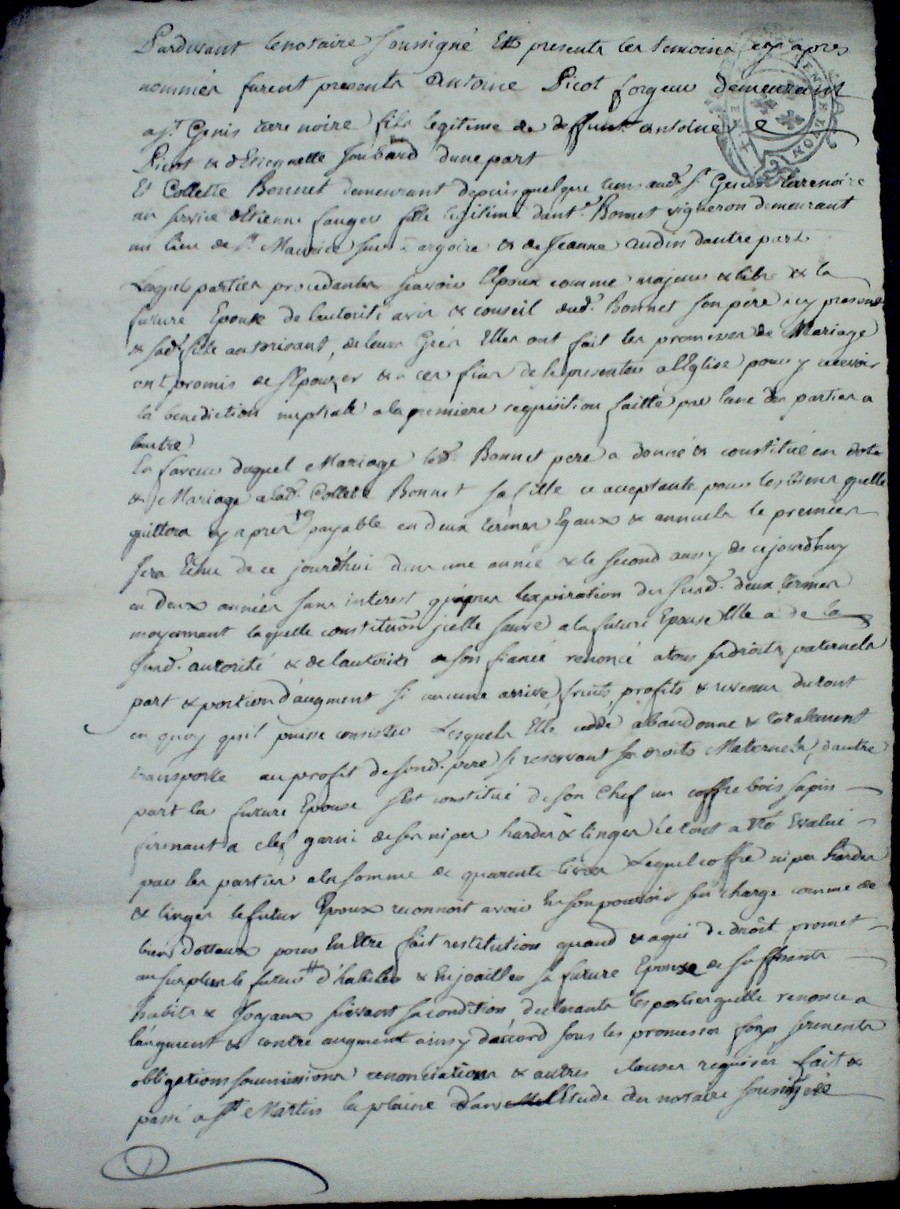 Pardevant le notaire soussigné Et presents les temoins cy apres
nommés furent presents Antoine Picot forgeur demeurant
a St Genis terre noire fils legitime de deffunt antoine
Picot & d'Etiennette Joubard dune part
Et Collette Bonnet demeurant depuis quelque tems aud. St Genis terrenoire
au service d'Etienne fauger fille legitime dant. Bonnet vigneron demeurant
au lieu de St Maurice sur dargoire & de Jeanne audin dautre part
Lesquels parties procedantes scavoir l'Epoux comme majeur & libre & la
future Epouse de lautorité avis & conseil dud. Bonnet son père icy present
& sad. fille autorisant, de leurs Grés Elles ont fait les promesses de Mariage
ont promis de s'Epouzer & a ces fins de se presenter a l'Eglise pour y recevoir
la benediction nuptiale a la premiere requisition faitte par lune des parties a
lautre
En faveur duquel Mariage led. Bonnet pere a donné & constitué en dote
& Mariage a lad. Collette Bonnet sa fille ce acceptante pour les biens quelle
quittera cy apres payable en deux termes Egaux & annuels le premier
sera Echu de ce jourd'hui dans une année & le second aussy de cejourdhuy
en deux années sans interest qu'apres lexpiration des susd. deux termes
moyennant laquelle constitution icelle sauve a la future Epouse Elle a de la
susd. autorité & de lautorité de son fiancé renoncé a tous ses droits paternels
part & portion d'augment si aucune arrive fruits profits & revenus du tout
en quoy qu'il puisse consister Lesquels Elle cedde abandonne & totalement
transporte au profit de sond. pere se reservant ses droits Maternels, d'autre
part la future Epouse s'est constitué de son Chef un coffre bois sapin
fermant a clef garni de ses nipes hardes & linges le tout a Eté Evalué
par les parties a la somme de quarente livres Lequel coffre nipes hardes
& linges le futur Epoux reconnoit avoir En son pouvoir s'en charge comme de
bien Dottaux pour En Etre fait restitution quand & a qui de droit promet
au surplus le futur # d'habiller & Enjoailler sa future Epouse de suffisants
habits & Joyaux suivant sa condition declarants les parties quelle renonce a
l'augment & contre augment ainsy d'accord sous les promesses forps serments
obligations soumissions renonciations & autres clauses requises fait &
passé a St Martin la plaine dans l'Etude du notaire soussigné